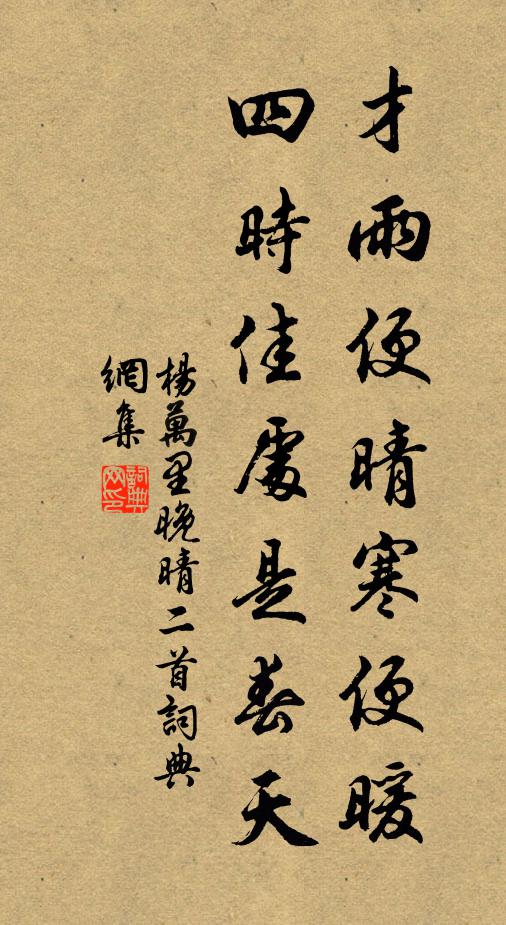 才雨便晴寒便暖
四時佳處是春天
楊萬里晚晴二首詞典
網集
詞典
网印